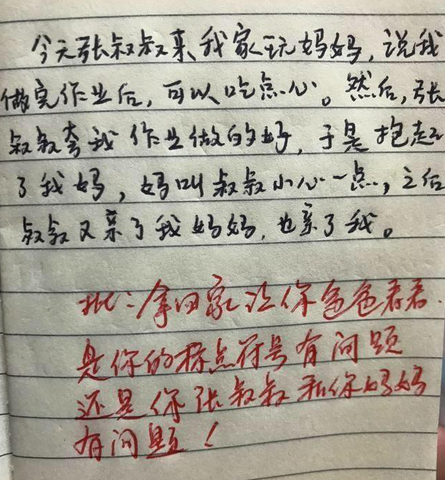 今天张叔叔来我家玩妈妈,说我
做完作业后,可以吃点心。然后,张
叔叔夸我作业做的好,于是抱起
了我妈,妈叫叔叔小心一点,之后
叔叔又亲了我妈妈,也亲了我。
批:拿回家让你爸爸看看
是你的标点符号有问题
还是你张叔叔和你妈妈
有问题!